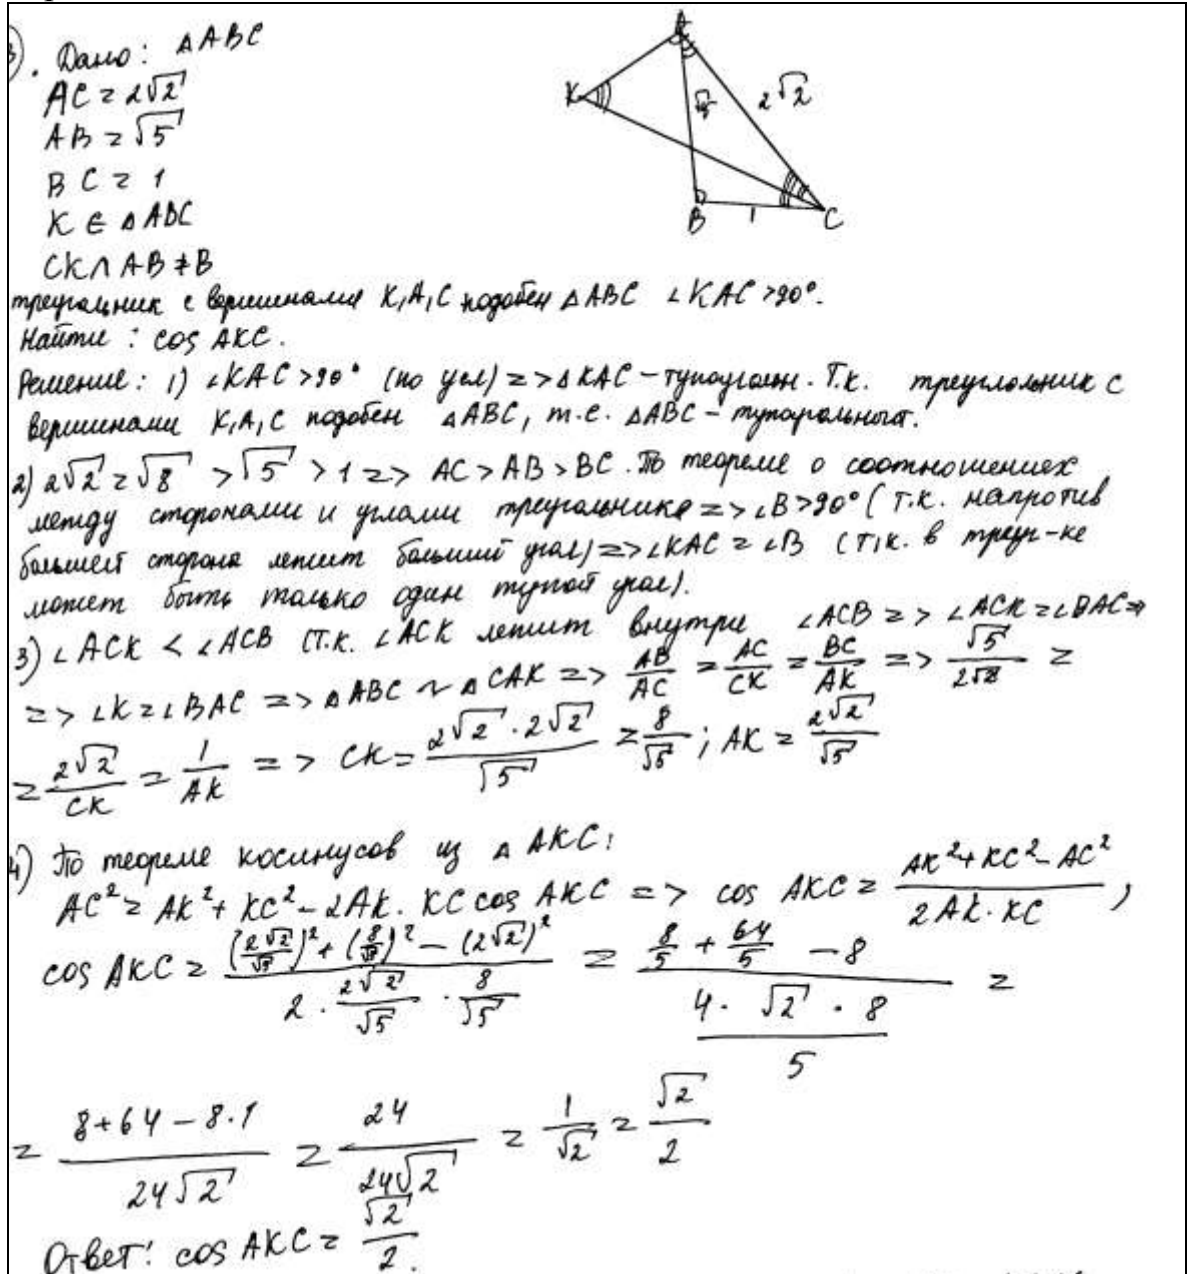 3). Дано: △ABC
AC = 2√2
AB = √5
BC = 1
K ∈ △ABC
CK ∩ AB ≠ B
треугольник с вершинами K,A,C подобен △ABC ∠KAC >90°.
Найти: cos AKC.
Решение: 1) ∠KAC >90° (по усл) => △KAC – тупоугольн. Т.к. треугольник с
вершинами K,A,C подобен △ABC, т.е. △ABC – тупоугольный.
2) 2√2 = √8 > √5 > 1 => AC > AB > BC. По теореме о соотношениях
между сторонами и углами треугольника => ∠B > 90° (т.к. напротив
большей стороны лежит больший угол) => ∠KAC = ∠B (т.к. в треуг-ке
может быть только один тупой угол).
3) ∠ACK < ∠ACB (т.к. ∠ACK лежит внутри ∠ACB => ∠ACK = ∠BAC =>
=> ∠K = ∠BAC => △ABC ~ △CAK => AB/AC = AC/CK = BC/AK => √5/2√2 =
= 2√2/CK = 1/AK => CK = 2√2 · 2√2/√5 = 8/√5; AK = 2√2/√5
4) По теореме косинусов из △AKC:
AC² = AK² + KC² – 2AK · KC cos AKC => cos AKC = AK² + KC² – AC²/2AK · KC,
cos AKC = (2√2/√5)² + (8/√5)² – (2√2)²/2 · 2√2/√5 · 8/√5 = 8/5 + 64/5 – 8/4 · √2 · 8/5 =
= 8 + 64 – 8·1/24√2 = 24/24√2 = 1/√2 = √2/2
Ответ: cos AKC = √2/2.
A
K
√5
2√2
B
1
C